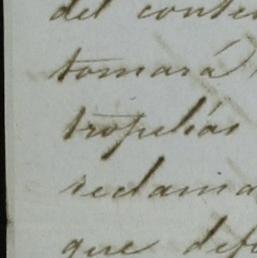 del conte
tomará
tropelías
reclama
que def